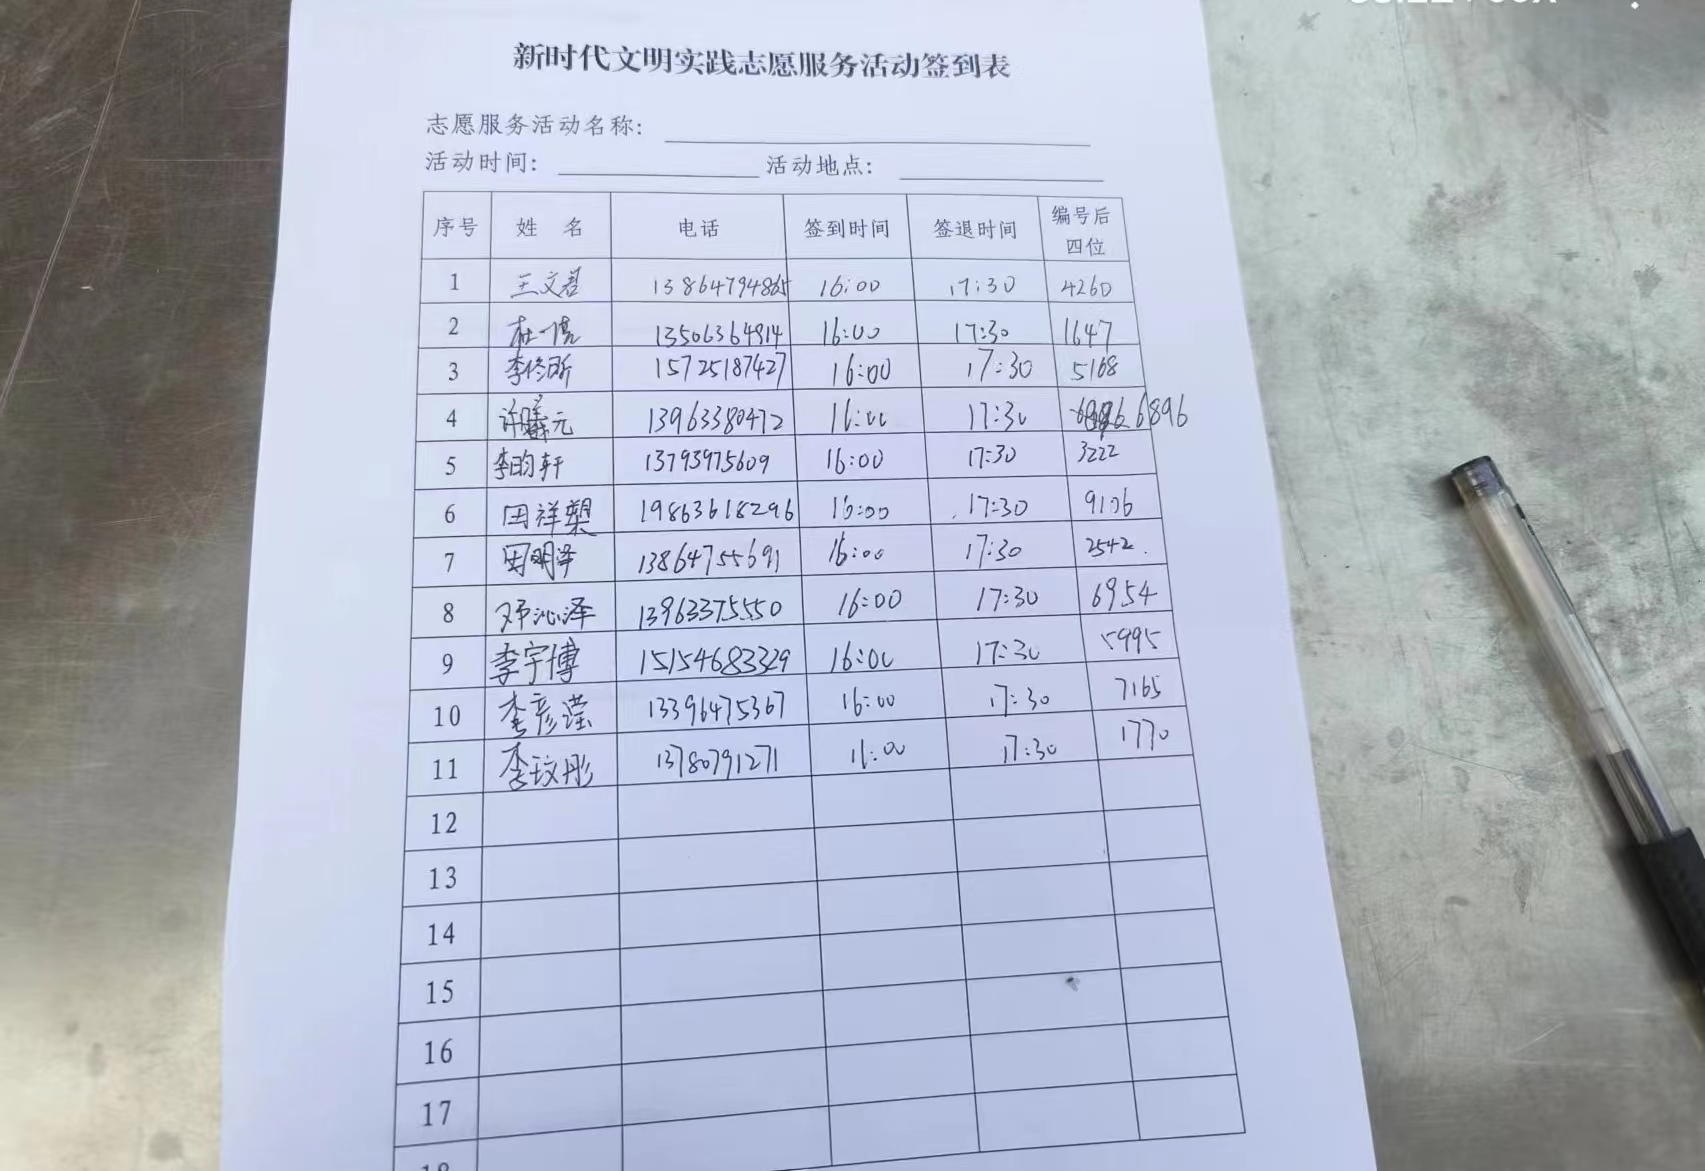 新时代文明实践志愿服务活动签到表
志愿服务活动名称:
活动时间: 活动地点:
序号 姓 名 电话 签到时间 签退时间 编号后四位
1 王文君 13864794865 16:00 17:30 4260
2 杜一 13506364814 16:00 17:30 1647
3 李修昕 15725187427 16:00 17:30 5168
4 许曦元 13963380472 16:00 17:30 6896
5 李昀轩 13793975609 16:00 17:30 3222
6 田祥塑 19863618296 16:00 17:30 9106
7 田明泽 13864755691 16:00 17:30 2542.
8 邓沁泽 13963375550 16:00 17:30 6954
9 李宇博 15154683329 16:00 17:30 5995
10 李彦滢 13396475367 16:00 17:30 7165
11 李玟彤 13780791271 16:00 17:30 1770
12
13
14
15
16
17